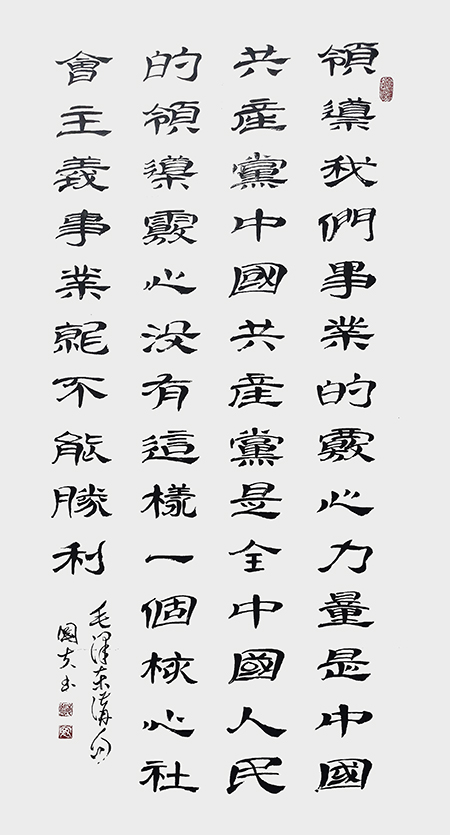 領導我們事業的覈心力量是中國
共産黨中國共産黨是全中國人民
的領導覈心没有這樣一個核心社
會主義事業就不能勝利
毛澤東
國书